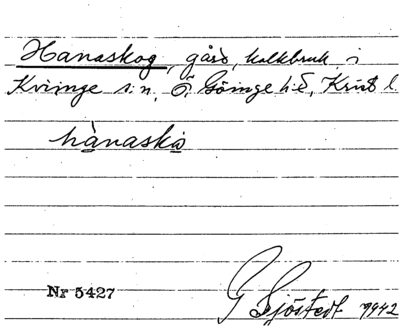 Hanaskog, gård, kalkbruk i
Kviinge sn, Ö. Göinge hd, Krist l.
hànaskò
Nr 5427
G Sjöstedt 1942